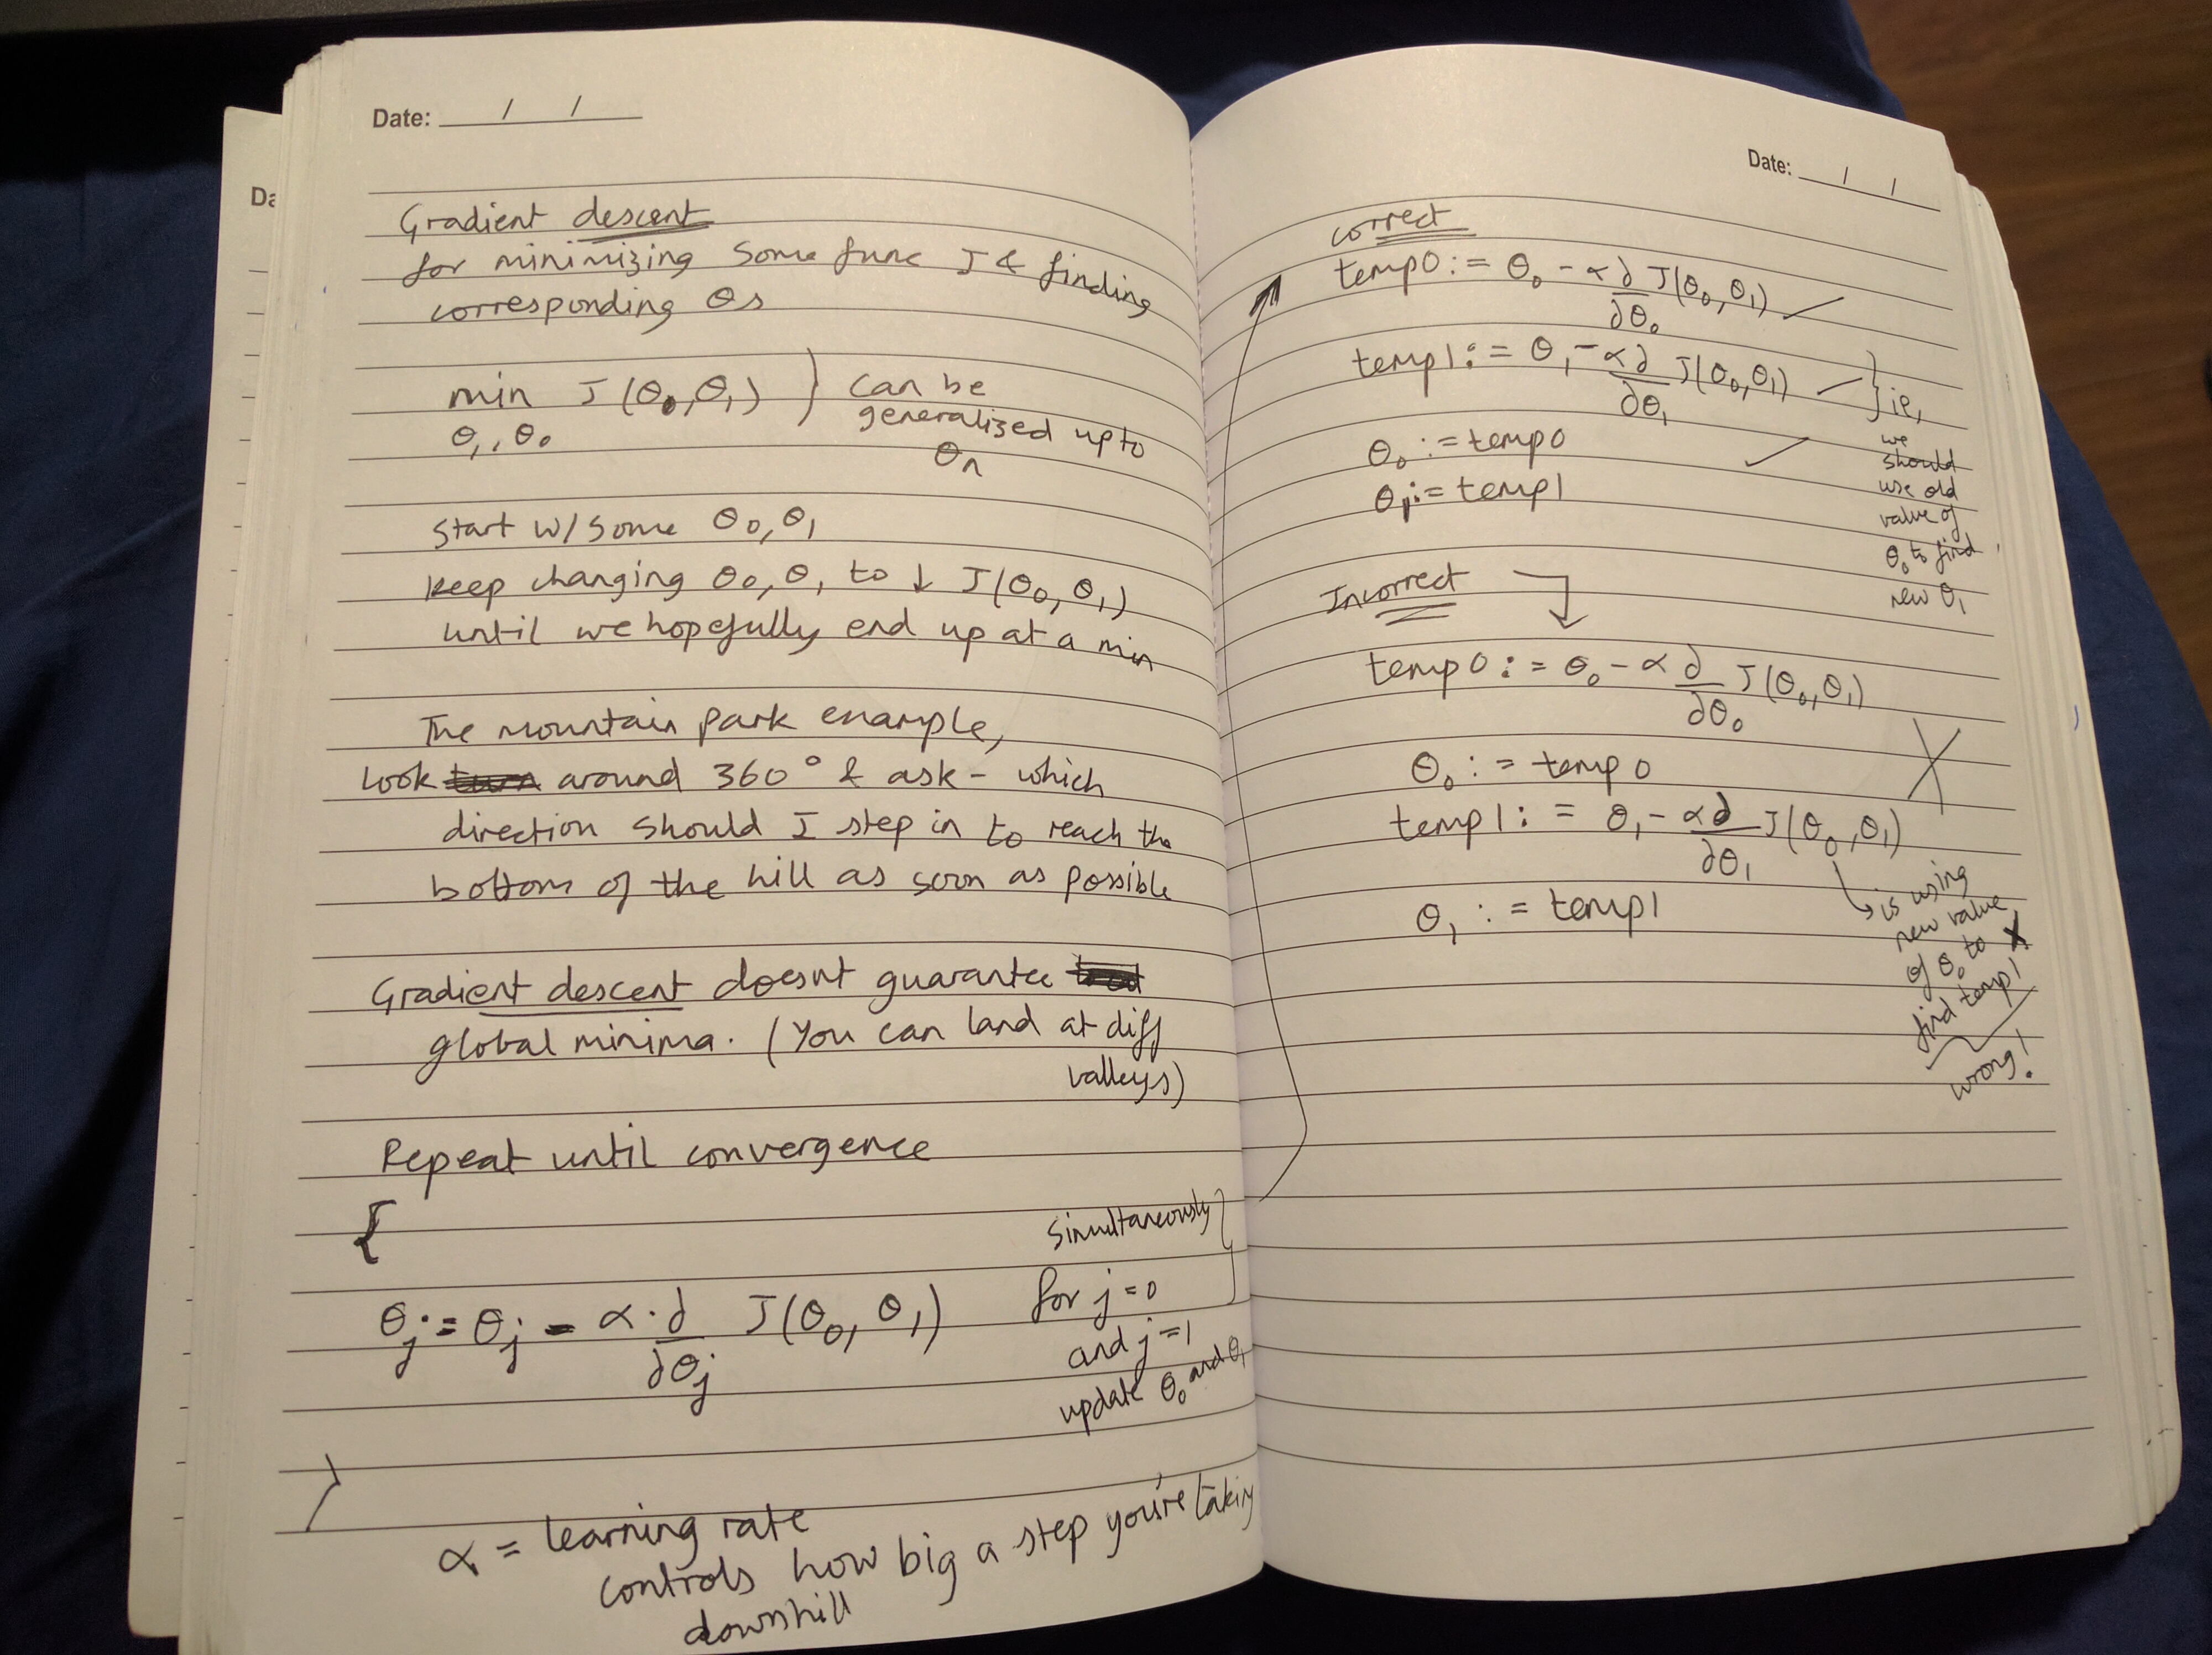 Date: / /
Da
Gradient descent
for minimizing some func J & finding
corresponding θs
min J(θ₀,θ₁) } can be
θ₁,θ₀ generalized upto
θn
Start w/ some θ₀,θ₁
keep changing θ₀,θ₁ to ↓ J(θ₀,θ₁)
until we hopefully end up at a min
The mountain park example,
look turn around 360° & ask - which
direction should I step in to reach the
bottom of the hill as soon as possible
Gradient descent doesnt guarantee
global minima. (You can land at diff
valleys)
Repeat until convergence
{
simultaneously
θj := θj - α·∂/∂θj J(θ₀,θ₁) for j=0
and j=1
update θ₀ and θ₁
}
α = learning rate
controls how big a step you're taking
downhill
Date: / /
correct
temp0 := θ₀ - α∂/∂θ₀ J(θ₀,θ₁) ✓
temp1 := θ₁ - α∂/∂θ₁ J(θ₀,θ₁) ✓ } ie,
θ₀ := temp0 ✓
θ₁ := temp1
we
should
use old
value of
θ₀ to find
new θ₁
Incorrect
temp0 := θ₀ - α∂/∂θ₀ J(θ₀,θ₁)
θ₀ := temp0 X
temp1 := θ₁ - α∂/∂θ₁ J(θ₀,θ₁)
θ₁ := temp1
is using
new value
of θ₀ to X
find temp1
wrong!